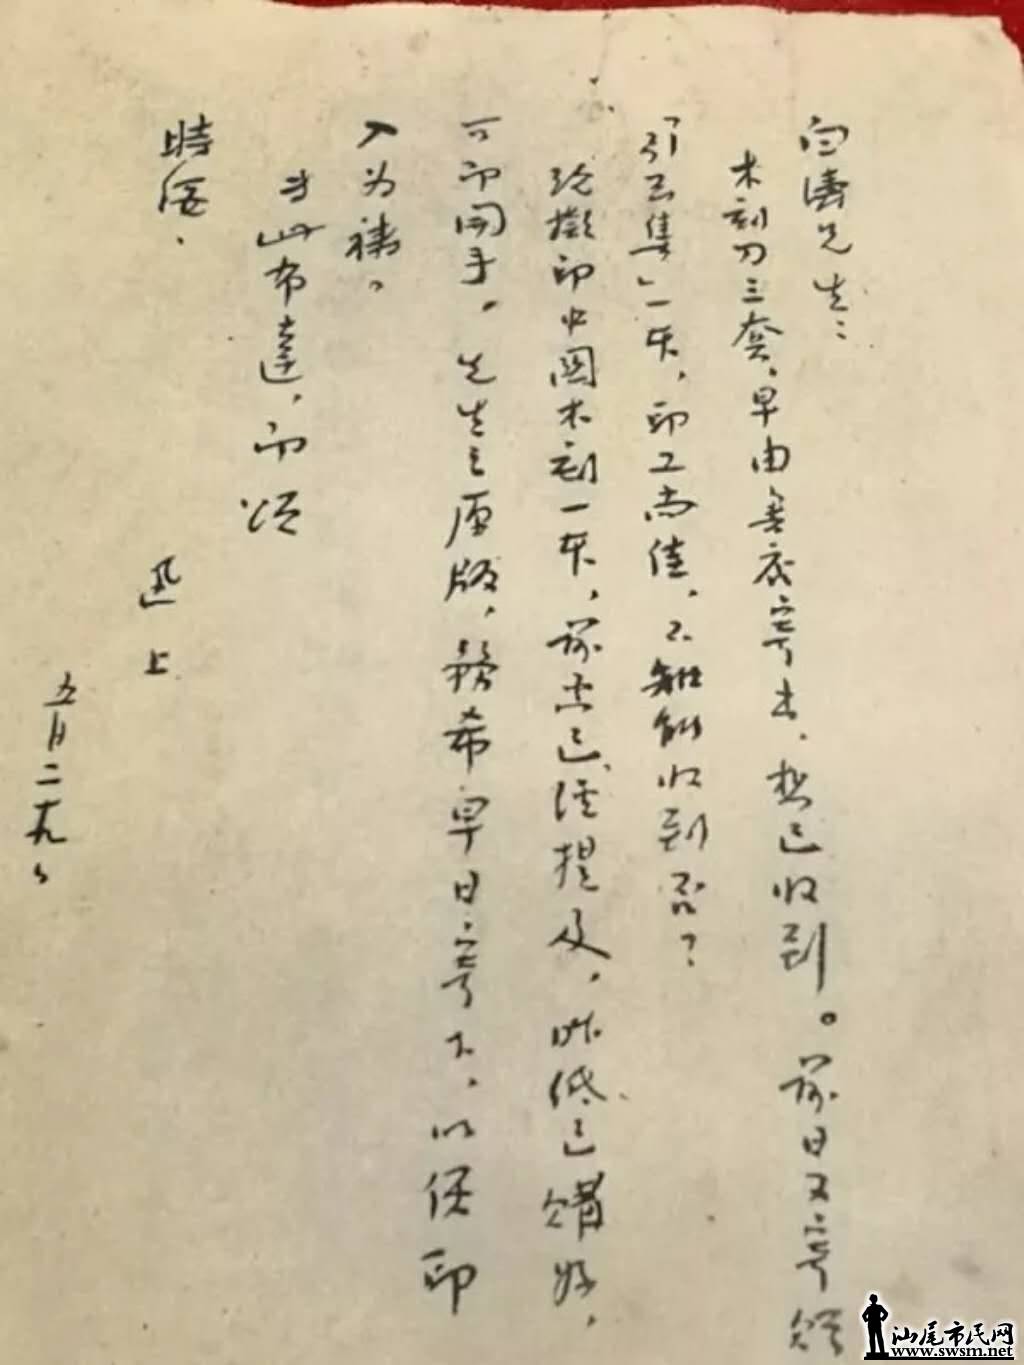 白濤先生：
木刻刀三套，早由書店寄出，想已收到。前日又寄贈
「引玉集」一本，印工尚佳，不知能收到否？
現擬印中國木刻一本，前亦已經提及，昨紙已購好，
可即開手。先生之原版，務希早日寄下，以便印
入为禱。
專此布達，即頌
時綏。
迅 上
五月二十九、
汕尾市民网
www.swsm.net